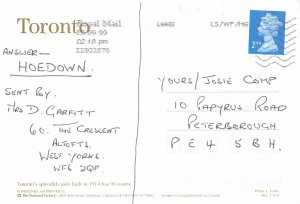 Toronto
Royal Mail
Leeds LS/WF/HG
02:18 pm
22802876
2ND
ANSWER—
HOEDOWN.
SENT BY.
MRS D. GARFITT
60. THE CRESCENT
ALTOFTS.
WEST YORKS.
WF6 2QP
YOURS/JOSIE COMP
10 PAPYRUS ROAD
PETERBOROUGH
PE4 5BH.
Toronto's splendid castle built in 1914 has 98 rooms.